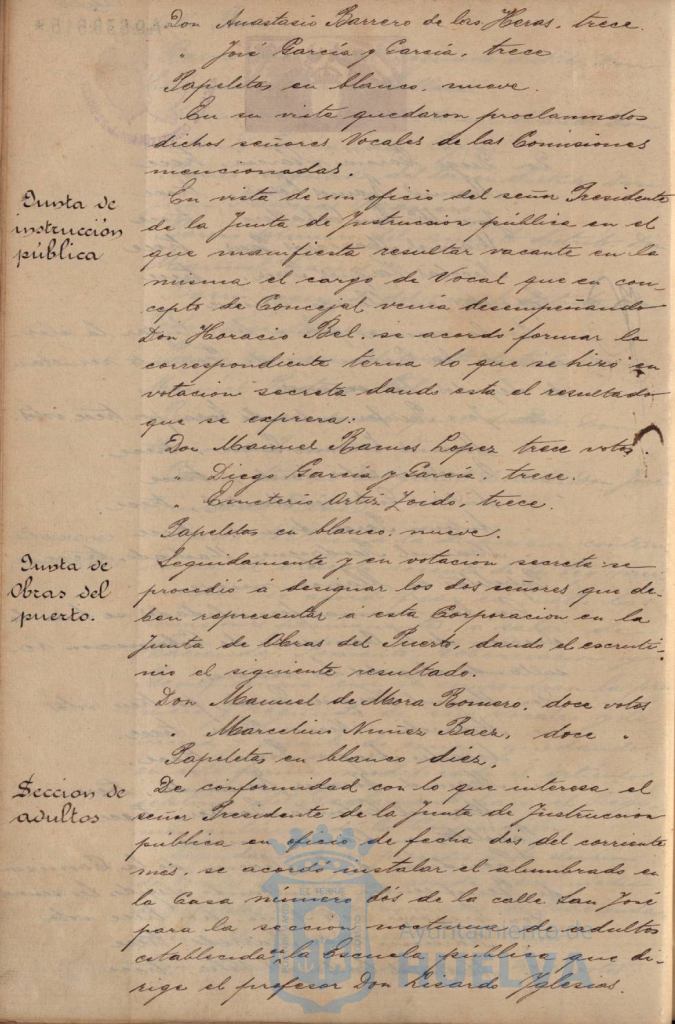 Don Anastasio Barrero de las Heras, trece.
" José García y García, trece
Papeletas en blanco, nueve.
En su vista quedaron proclamados
dichos señores Vocales de las Comisiones
mencionadas.
Junta de
instrucción
pública
En vista de un oficio del señor Presidente
de la Junta de Instrucción pública en el
que manifiesta resultar vacante en la
misma el cargo de Vocal que en con-
cepto de Concejal venía desempeñando
Don Horacio Bel, se acordó formar la
correspondiente terna lo que se hizo en
votacion secreta dando esta el resultado
que se expresa:
Don Manuel Ramos Lopez trece votos.
" Diego García y García, trece.
" Emeterio Ortiz Zoido, trece.
Papeletas en blanco; nueve.
Junta de
Obras del
puerto.
Seguidamente y en votacion secreta se
procedió á designar los dos señores que de-
ben representar á esta Corporacion en la
Junta de Obras del Puerto, dando el escruti-
nio el siguiente resultado.
Don Manuel de Mora Romero, doce votos
" Marcelino Nuñez Baez, doce "
Papeletas en blanco diez.
Seccion de
adultos
De conformidad con lo que interesa el
señor Presidente de la Junta de Instruccion
pública en oficio de fecha dós del corriente
més, se acordó instalar el alumbrado en
la Casa número dós de la calle San José
para la seccion nocturna de adultos
establecida en la Escuela pública que di-
rige el profesor Don Lisardo Yglesias.
Ayuntamiento de
HUELVA